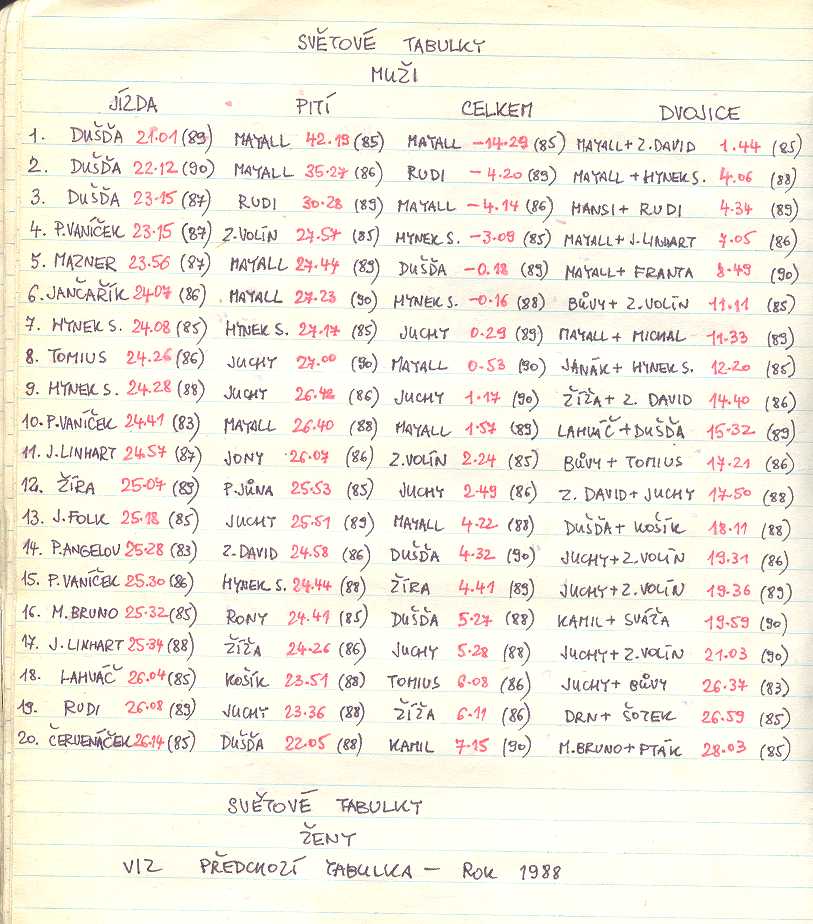 SVĚTOVÉ TABULKY
MUŽI
JÍZDA PITÍ CELKEM DVOJICE
1. DUŠĎA 21.01 (89) MAYALL 42.19 (85) MAYALL -14.29 (85) MAYALL + Z.DAVID 1.44 (85)
2. DUŠĎA 22.12 (90) MAYALL 35.27 (86) RUDI - 4.20 (89) MAYALL + HYNEK S. 4.06 (88)
3. DUŠĎA 23.15 (87) RUDI 30.28 (89) MAYALL - 4.14 (86) HANSI + RUDI 4.34 (89)
4. P.VANÍČEK 23.15 (87) Z.VOLÍN 27.57 (85) HYNEK S. -3.09 (85) MAYALL + J.LINHART 7.05 (86)
5. MAZNER 23.56 (87) MAYALL 27.44 (89) DUŠĎA -0.18 (89) MAYALL + FRANTA 8.49 (90)
6. JANČAŘÍK 24.07 (86) MAYALL 27.23 (90) HYNEK S. -0.16 (88) BŮVY + Z.VOLÍN 11.11 (85)
7. HYNEK S. 24.08 (85) HYNEK S. 27.17 (85) JUCHY 0.29 (89) MAYALL + MICHAL 11.33 (89)
8. TOMIUS 24.26 (86) JUCHY 27.00 (90) MAYALL 0.53 (90) JANÁK + HYNEK S. 12.20 (85)
9. HYNEK S. 24.28 (88) JUCHY 26.42 (86) JUCHY 1.17 (90) ŽÍŽA + Z. DAVID 14.40 (86)
10. P.VANÍČEK 24.41 (83) MAYALL 26.40 (88) MAYALL 1.57 (89) LAHVÁČ + DUŠĎA 15.32 (89)
11. J.LINHART 24.57 (87) JONY 26.07 (86) Z.VOLÍN 2.24 (85) BŮVY + TOMIUS 17.21 (86)
12. ŽÍRA 25.07 (89) P.JŮNA 25.53 (85) JUCHY 2.49 (86) Z. DAVID + JUCHY 17.50 (88)
13. J.FOLK 25.18 (85) JUCHY 25.51 (89) MAYALL 4.22 (88) DUŠĎA + KOŠÍK 18.11 (88)
14. P.ANGELOV 25.28 (83) Z.DAVID 24.58 (86) DUŠĎA 4.32 (90) JUCHY + Z.VOLÍN 19.31 (86)
15. P.VANÍČEK 25.30 (86) HYNEK S. 24.44 (88) ŽÍRA 4.41 (89) JUCHY + Z.VOLÍN 19.36 (89)
16. M.BRUNO 25.32 (85) RONY 24.41 (85) DUŠĎA 5.27 (88) KAMIL + SVÁŽA 19.59 (90)
17. J.LINHART 25.34 (88) ŽÍŽA 24.26 (86) JUCHY 5.28 (88) JUCHY + Z.VOLÍN 21.03 (90)
18. LAHVÁČ 26.04 (85) KOŠÍK 23.51 (88) TOMIUS 6.08 (86) JUCHY + BŮVY 26.37 (83)
19. RUDI 26.08 (89) JUCHY 23.36 (88) ŽÍŽA 6.11 (86) DRN + ŠOTEK 26.59 (85)
20. ČERVENÁČEK 26.14 (85) DUŠĎA 22.05 (88) KAMIL 7.15 (90) M.BRUNO + PTÁK 28.03 (85)
SVĚTOVÉ TABULKY
ŽENY
VIZ PŘEDCHOZÍ TABULKA - ROK 1988